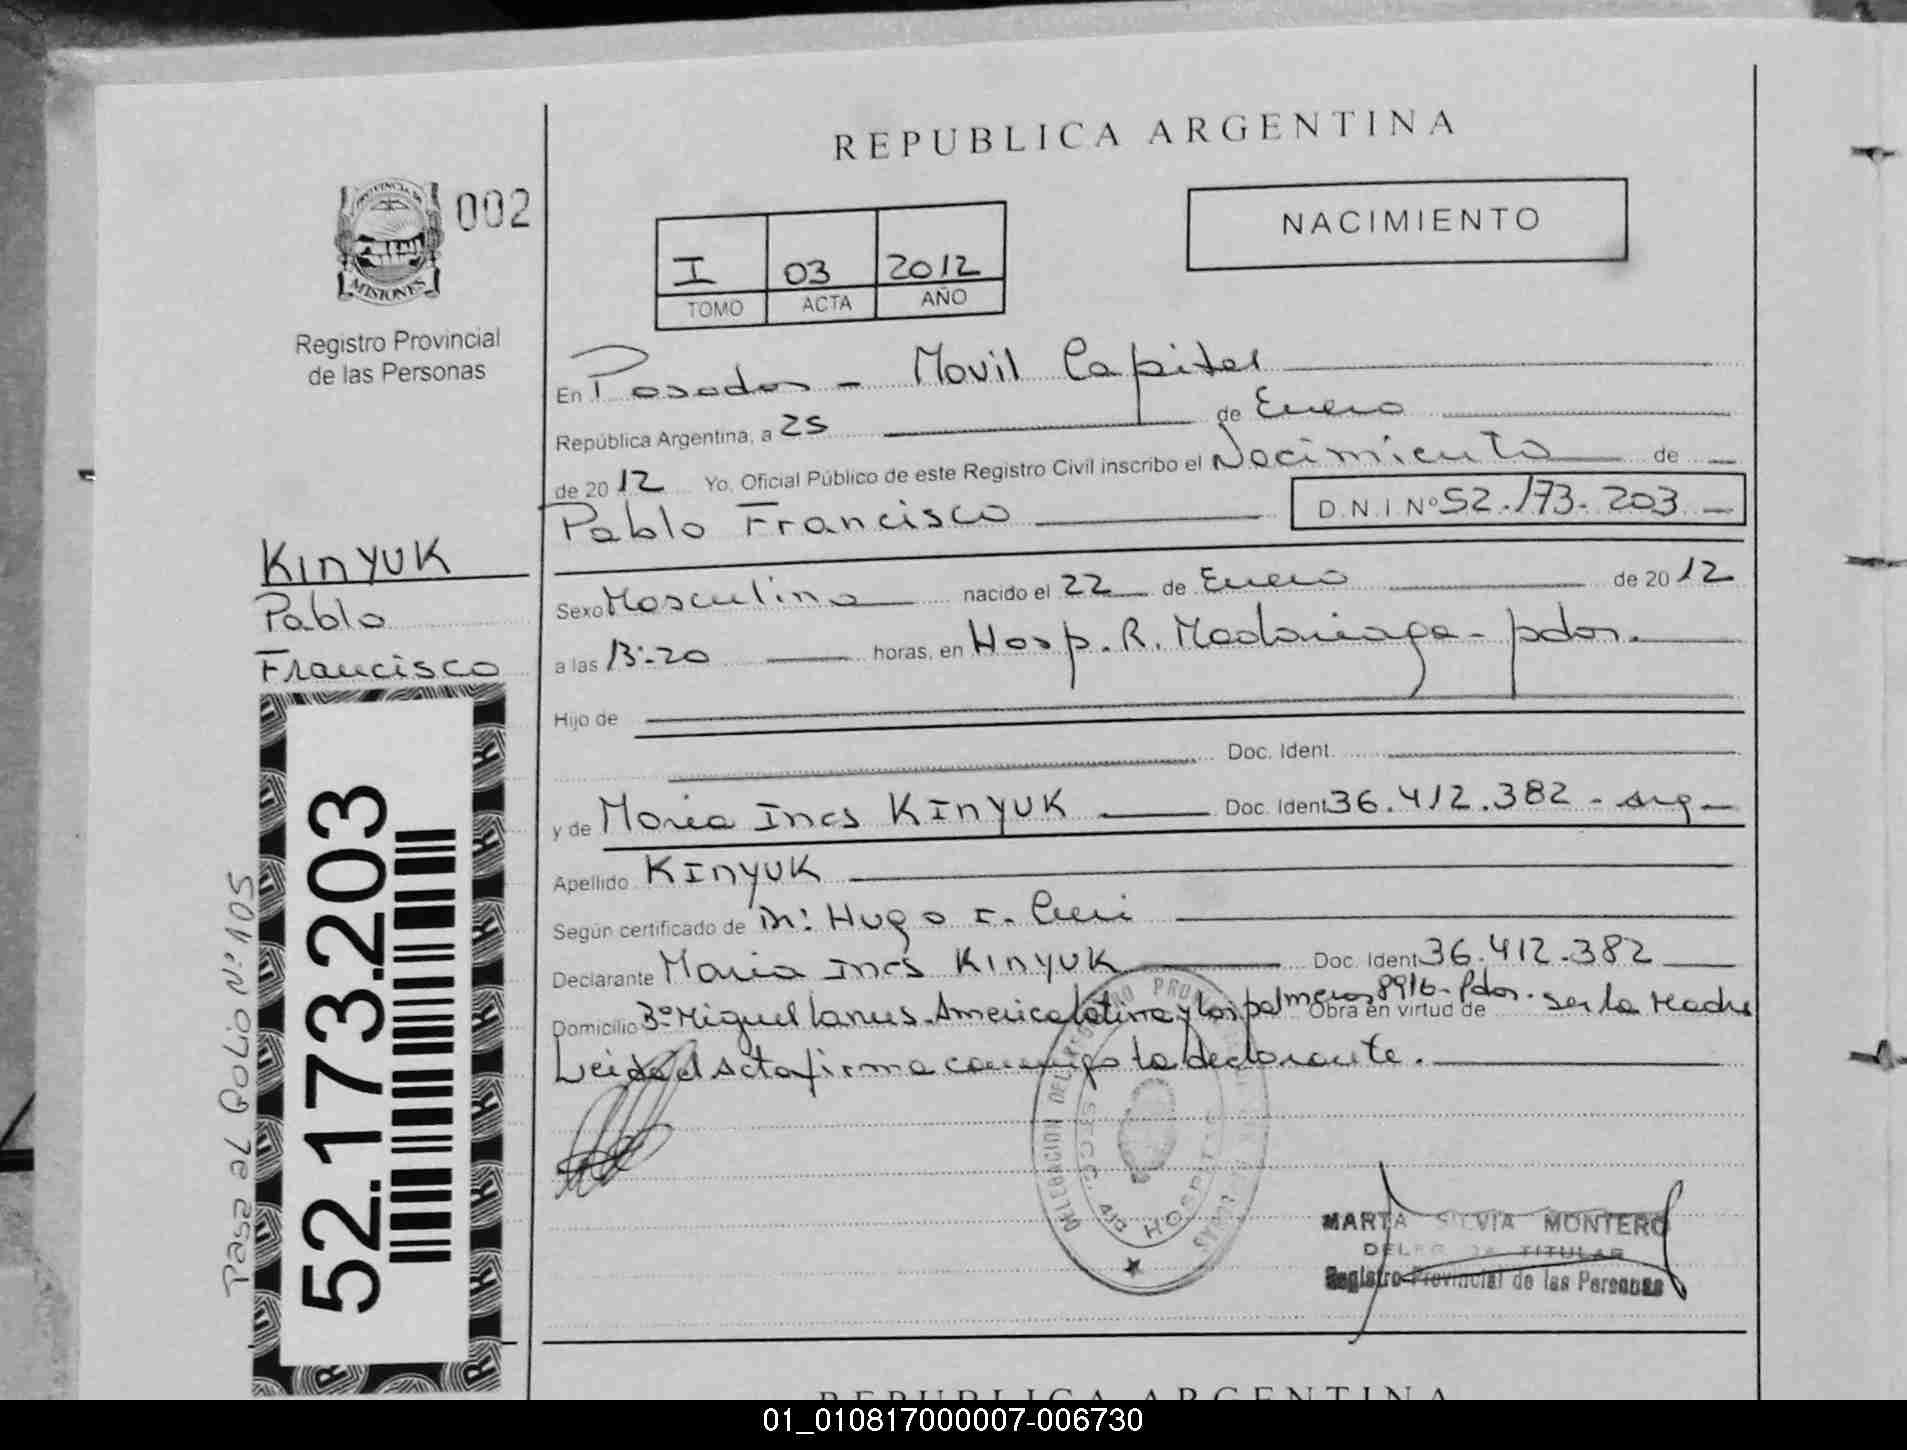 REPUBLICA ARGENTINA
PROVINCIA DE
MISIONES
002
Registro Provincial
de las Personas
NACIMIENTO
I 03 2012
TOMO ACTA AÑO
En Posadas - Movil Capital
República Argentina, a 25 de Enero
de 2012 Yo, Oficial Público de este Registro Civil inscribo el Nacimiento de
Pablo Francisco D.N.I Nº 52.173.203
KINYUK
Pablo
Francisco
Sexo Masculino nacido el 22 de Enero de 2012
a las 13:20 horas, en Hosp. R. Madariaga - pdas.
Hijo de
Doc. Ident.
y de Maria Ines KINYUK Doc. Ident 36.412.382 - arg
Apellido KINYUK
Según certificado de Dr: Hugo I.
Declarante Maria Ines KINYUK Doc. Ident 36.412.382
Domicilio Bº Miguel Lanus. America latina y Las palmeras 8916 - Pdas. Obra en virtud de ser la Madre
Leida el Acta firma conmigo la declarante.
52.173.203
Pasa al Folio Nº: 105
HOSPITAL
MARTA SILVIA MONTERO
DELEGADA TITULAR
Registro Provincial de las Personas
REPUBLICA ARGENTINA
01_010817000007-006730